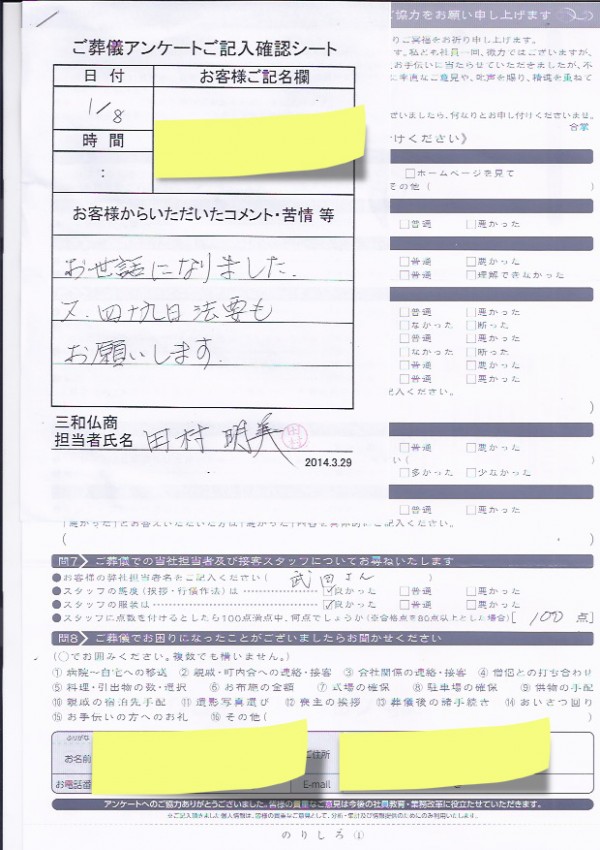 ご葬儀アンケートご記入確認シート
日 付
お客様ご記名欄
1/8
時 間
:
お客様からいただいたコメント・苦情 等
お世話になりました.
又.四十九日法要も
お願いします.
三和仏商
担当者氏名 田村 明美
2014.3.29
ご協力をお願い申し上げます
りご冥福をお祈り申し上げます。
す。私ども社員一同、微力ではございますが、
お手伝いに当たらせていただきましたが、不
に率直なご意見や、叱声を賜り、精進を重ねて
ざいましたら、何なりとお申し付けくださいませ。
合掌
けください》
□ホームページを見て
その他 ( )
□普通 □悪かった
□普通 □悪かった
□普通 □理解できなかった
□普通 □悪かった
□なかった □断った
□普通 □悪かった
□なかった □断った
□普通 □悪かった
□普通 □悪かった
記入ください。
)
□普通 □悪かった
い( )
□多かった □少なかった
□普通 □悪かった
( )
問7 ご葬儀での当社担当者及び接客スタッフについてお尋ねいたします
●お客様の弊社担当者名をご記入ください ( 武田さん )
●スタッフの態度(挨拶・行儀作法)は ☑良かった □普通 □悪かった
●スタッフの服装は ☑良かった □普通 □悪かった
●スタッフに点数を付けるとしたら100点満点中、何点でしょうか(※合格点を80点以上とした場合)[ 100 点]
問8 ご葬儀でお困りになったことがございましたらお聞かせください
(○でお囲みください。複数でも構いません。)
① 病院〜自宅への移送 ② 親戚・町内会への連絡・接客 ③ 会社関係の連絡・接客 ④ 僧侶との打ち合わせ
⑤ 料理・引出物の数・選択 ⑥ お布施の金額 ⑦ 式場の確保 ⑧ 駐車場の確保 ⑨ 供物の手配
⑩ 親戚の宿泊先手配 ⑪ 遺影写真選び ⑫ 喪主の挨拶 ⑬ 葬儀後の諸手続き ⑭ おいさつ回り
⑮ お手伝いの方へのお礼 ⑯ その他( )
ふりがな
お名前
ご住所
お電話番
E-mail
アンケートへのご協力ありがとうございました。皆様の貴重なご意見は今後の社員教育・業務改革に役立たせていただきます。
のりしろ ①